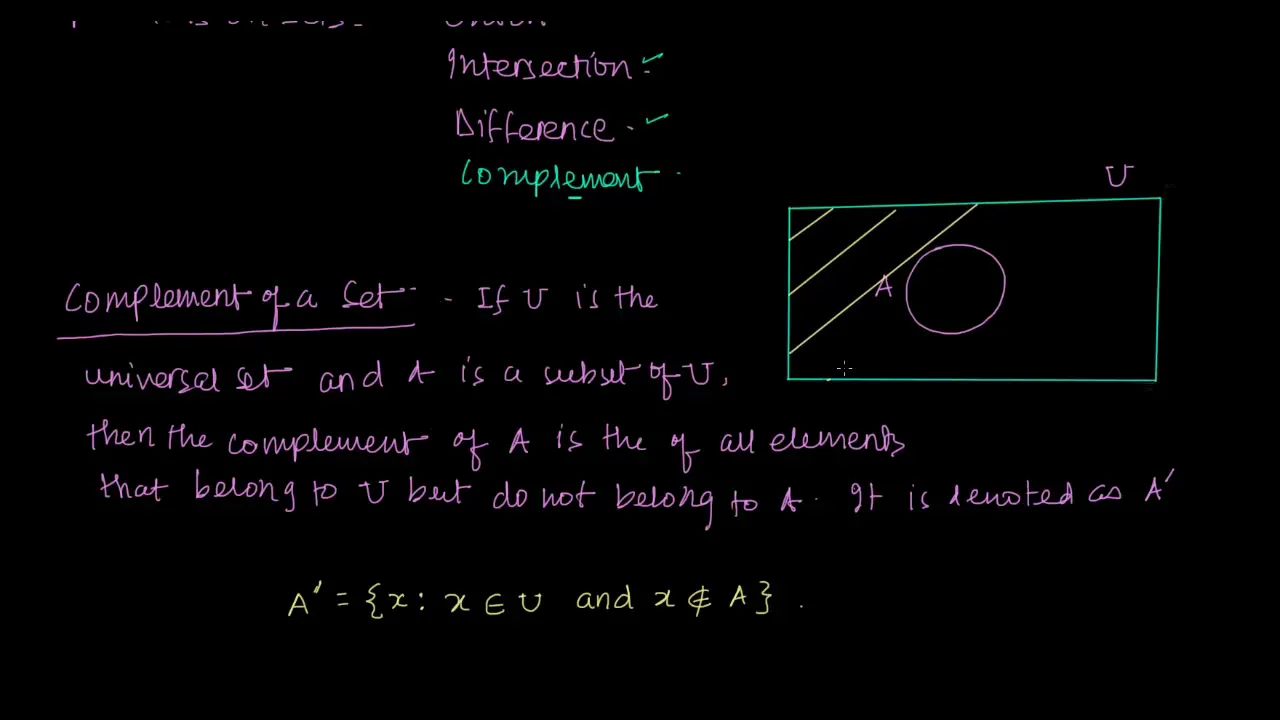 Intersection.
Difference.
Complement.
U
A
Complement of a Set - If U is the
universal set and A is a subset of U,
then the complement of A is the of all elements
that belong to U but do not belong to A. It is denoted as A'
A' = {x: x ∈ U and x ∉ A}.